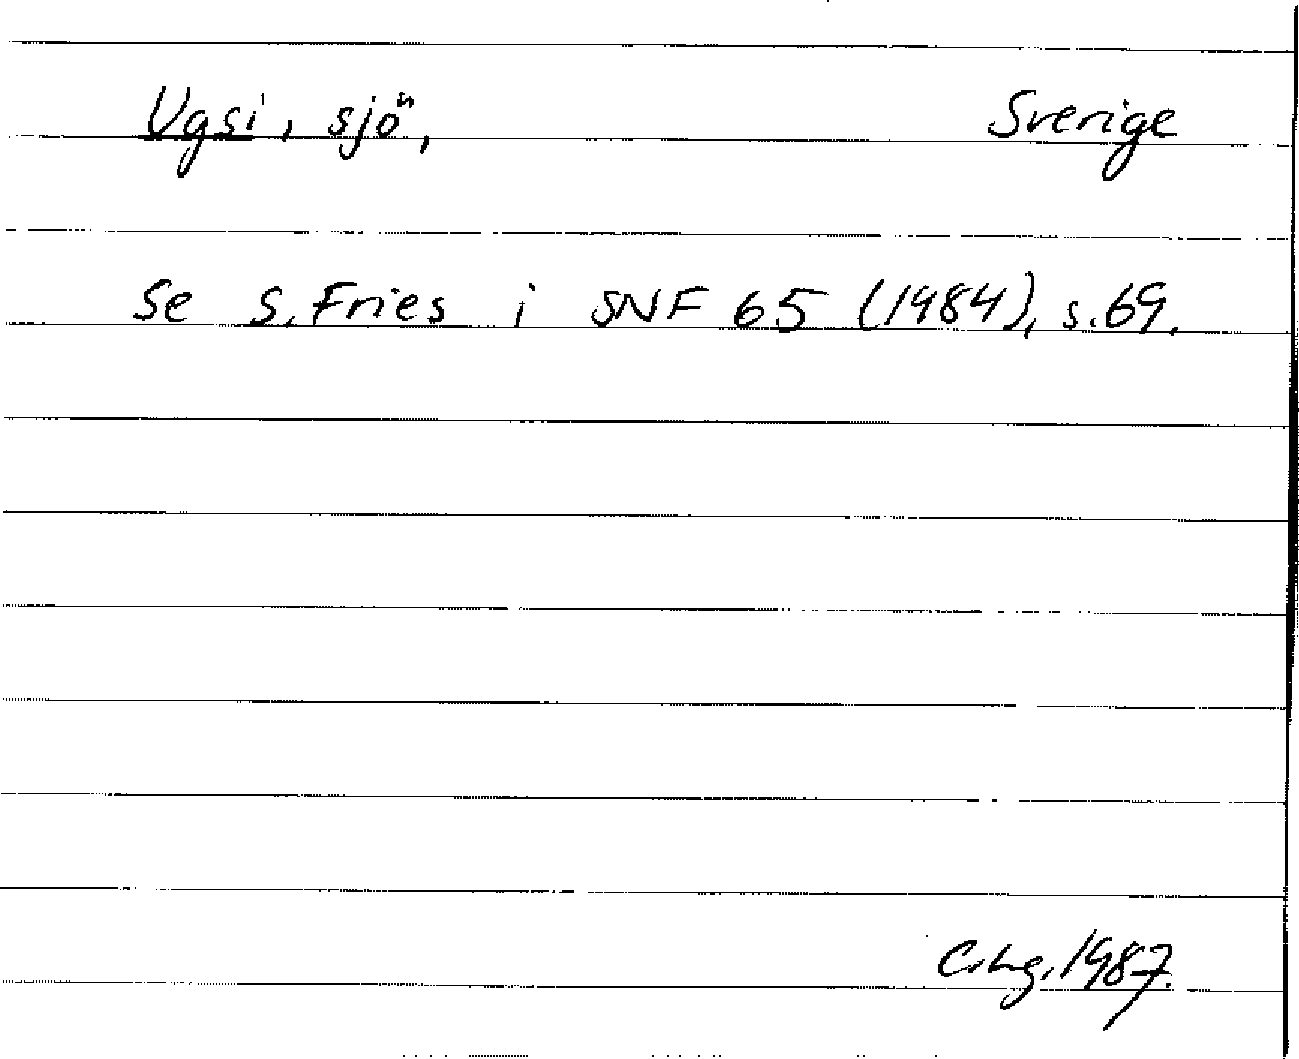 Ugsi, sjö, Sverige
Se S. Fries i SNF 65 (1984), s. 69.
C.Hg. 1987.